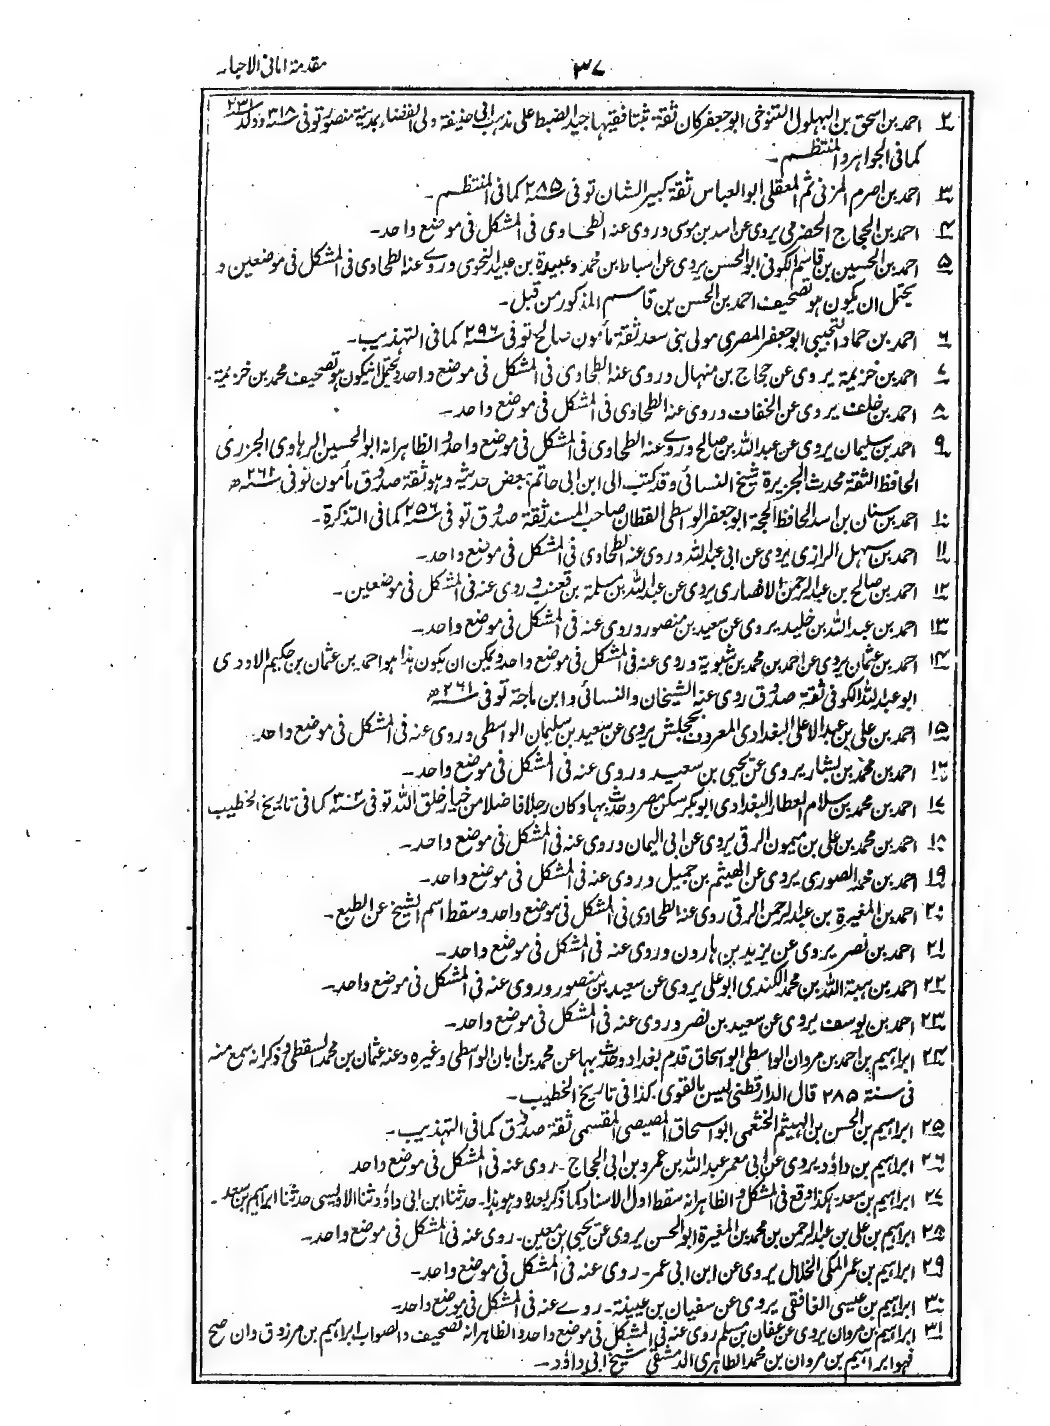 مقدمة امانی الاحبار
٣٧
٢ احمد بن اسحق بن البهلول التنوخی ابو جعفر کان ثقة ثبتا فقیها جید الضبط علی مذهب ابی حنیفة ولی القضاء بمدینة منصور توفی سنة ٣١٨ ولد سنة ٢٣١
کما فی الجواهر والمنتظم۔
٣ احمد بن اصرم المزنی ثم المعقلی ابو العباس ثقة کبیر الشان توفی سنة ٢٨٥ کما فی المنتظم۔
٤ احمد بن الحجاج الحضرمی یروی عن اسد بن موسی وروی عنه الطحاوی فی المشکل فی موضع واحد۔
٥ احمد بن الحسین بن قاسم الکوفی ابو الحسن یروی عن اسباط بن محمد وعبیدة بن عبید النحوی وروے عنه الطحاوی فی المشکل فی موضعین و
یحتمل ان یکون هو تصحیف احمد بن الحسن بن قاسم المذکور من قبل۔
٦ احمد بن حماد التجیبی ابو جعفر المصری مولی بنی سعد ثقة مأمون صالح توفی سنة ٢٩٦ کما فی التهذیب۔
٧ احمد بن خزیمة یروی عن حجاج بن منهال وروی عنه الطحاوی فی المشکل فی موضع واحد ویحتمل ان یکون هو تصحیف محمد بن خزیمة۔
٨ احمد بن خلف یروی عن الخفات وروی عنه الطحاوی فی المشکل فی موضع واحد۔
٩ احمد بن سلیمان یروی عن عبد الله بن صالح وروے عنه الطحاوی فی المشکل فی موضع واحد والظاهر انه ابو الحسین الرهاوی الجزری
الحافظ الثقة محدث الجزیرة شیخ النسائی وقد کتب الی ابن ابی حاتم ببعض حدیثه وهو ثقة صدوق مأمون توفی سنة ٢٦١ھ
١٠ احمد بن سنان بن اسد الحافظ الحجة ابو جعفر الواسطی القطان صاحب المسند ثقة صدوق توفی سنة ٢٥٦ کما فی التذکرة۔
١١ احمد بن سهل الرازی یروی عن ابی عبد الله وروی عنه الطحاوی فی المشکل فی موضع واحد۔
١٢ احمد بن صالح بن عبد الرحمن الانصاری یروی عن عبد الله بن مسلمة بن قعنب وروی عنه فی المشکل فی موضعین۔
١٣ احمد بن عبد الله بن خلید یروی عن سعید بن منصور وروی عنه فی المشکل فی موضع واحد۔
١٤ احمد بن عثمان یروی عن احمد بن محمد بن شبویة وروی عنه فی المشکل فی موضع واحد ویمکن ان یکون هذا هو احمد بن عثمان بن حکیم الاودی
ابو عبد الله الکوفی ثقة صدوق روی عنه الشیخان والنسائی وابن ماجة توفی سنة ٢٦١ھ
١٥ احمد بن علی بن عبد الاعلی البغدادی المعروف بمجلش یروی عن سعید بن سلیمان الواسطی وروی عنه فی المشکل فی موضع واحد۔
١٦ احمد بن محمد بن بشار یروی عن یحیی بن سعید وروی عنه فی المشکل فی موضع واحد۔
١٧ احمد بن محمد بن سلام العطار البغدادی ابو بکر سکن مصر وحدث بها وکان رجلا فاضلا من خیار خلق الله توفی سنة ٣٠٢ کما فی تاریخ الخطیب
١٨ احمد بن محمد بن علی بن میمون الرقی یروی عن ابی الیمان وروی عنه فی المشکل فی موضع واحد۔
١٩ احمد بن محمد الصوری یروی عن الهیثم بن جمیل وروی عنه فی المشکل فی موضع واحد۔
٢٠ احمد بن المغیرة بن عبد الرحمن الرقی روی عنه الطحاوی فی المشکل فی موضع واحد وسقط اسم الشیخ عن الطبع۔
٢١ احمد بن نصر یروی عن یزید بن هارون وروی عنه فی المشکل فی موضع واحد۔
٢٢ احمد بن هبة الله بن محمد الکندی ابو علی یروی عن سعید بن منصور وروی عنه فی المشکل فی موضع واحد۔
٢٣ احمد بن یوسف یروی عن سعید بن نصر وروی عنه فی المشکل فی موضع واحد۔
٢٤ ابراهیم بن احمد بن مروان الواسطی ابو اسحاق قدم بغداد وحدث بها عن محمد بن ابان الواسطی وغیره وعنه عثمان بن محمد السقطی وذکر انه سمع منه
فی سنة ٢٨٥ قال الدارقطنی لیس بالقوی کذا فی تاریخ الخطیب۔
٢٥ ابراهیم بن الحسن بن الهیثم الخثعمی ابو اسحاق المصیصی المقسمی ثقة صدوق کما فی التهذیب۔
٢٦ ابراهیم بن داؤد یروی عن ابی معمر عبد الله بن عمرو بن ابی الحجاج۔ روی عنه فی المشکل فی موضع واحد
٢٧ ابراهیم بن سعد هکذا وقع فی المشکل والظاهر انه سقط اول الاسناد کما ذکر بعده وهو هذا۔ حدثنا ابن ابی داؤد ثنا الاویسی حدثنا ابراهیم بن سعد۔
٢٨ ابراهیم بن علی بن عبد الرحمن بن محمد بن المغیرة ابو الحسن یروی عن یحیی بن معین۔ روی عنه فی المشکل فی موضع واحد۔
٢٩ ابراهیم بن عمر المکی الخلال یروی عن ابن ابی عمر۔ روی عنه فی المشکل فی موضع واحد۔
٣٠ ابراهیم بن عیسی الغافقی یروی عن سفیان بن عیینة۔ روے عنه فی المشکل فی موضع واحد۔
٣١ ابراهیم بن مروان یروی عن عفان بن مسلم روی عنه فی المشکل فی موضع واحد والظاهر انه تصحیف والصواب ابراهیم بن مرزوق وان صح
فهو ابراهیم بن مروان بن محمد الطاهری الدمشقی شیخ ابی داؤد۔